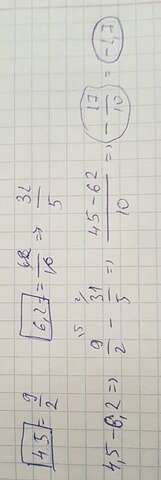 4,5 = 9/2 6,2 = 62/10 => 31/5
4,5 - 6,2 => 9/2 - 31/5 => 45 - 62/10 => - 17/10 = -1,7